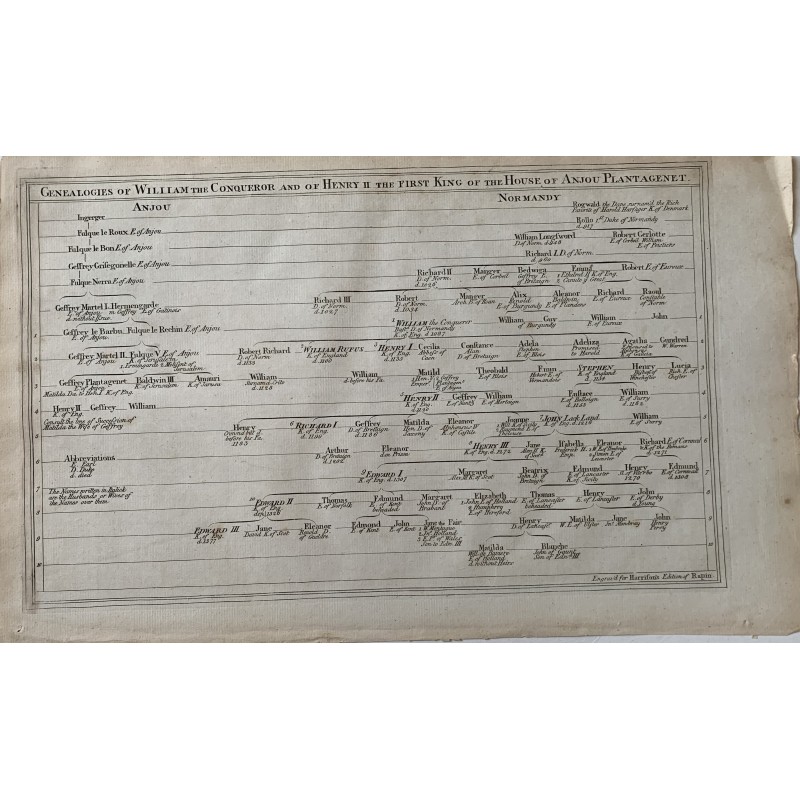 GENEALOGIES OF WILLIAM THE CONQUEROR AND OF HENRY II THE FIRST KING OF THE HOUSE OF ANJOU PLANTAGENET.
ANJOU NORMANDY
Rogwald the Dane surnam'd the Rich
Favrite of Harold Harfager K. of Denmark
Ingerger
Rollo 1st Duke of Normandy
d. 917
Fulque le Roux E. of Anjou
William Longsword Robert Gerlotte
D. of Norm. E. of Corbeil William
E. of Poictiers
Fulque le Bon E. of Anjou
Richard I. D. of Norm.
Geffrey Grisegonelle E. of Anjou
Richard II Mauger Hedwiga Emma Robert E. of Evreux
D. of Norm. E. of Corbeil Geffrey E. 1 Ethelred II K. of Eng.
d. 1026 of Bretaign 2 Canute ye Great
Fulque Nerra E. of Anjou
Geffrey Martel I. Hermengarde Richard III Robert Mauger Alix Eleanor Richard Raoul
E. of Anjou m. Geffrey E. of Gatinois D. of Norm. D. of Norm. Arch. B. of Roan Renald Baldwin E. of Evreux Constable
d. without Issue d. 1027 d. 1034 E. of Burgundy E. of Flanders of Norm.
1 WILLIAM the Conqueror William Guy William John
Bast. D. of Normandy of Burgundy E. of Evreux
K. of Eng. d. 1087
Geffrey le Barbu Fulque le Rechin E. of Anjou
E. of Anjou
Geffrey Martel II. Fulque V. E. of Anjou Robert Richard 2 WILLIAM RUFUS 3 HENRY I. Cecilia Constance Adela Adeliza Agatha Gundred
E. of Anjou K. of Jerusalem D. of Norm. K. of England K. of Eng. Abbess of Alan Stephen Promised W. Warren
1 Ermengarde 2 Melisent of Jerusalem d. 1100 d. 1135 Caen D. of Bretaign E. of Blois to Harold
Geffrey Plantagenet Baldwin III Amauri William William Matild Theobald STEPHEN Henry Lucia
E. of Anjou K. of Jerusalem K. of Jerusa. Surnam'd Crito d. before his Fa. 1 Hen. 5 2 Geffrey E. of Blois K. of England Bishop of Rich. E. of
Matilda Da. to Hen. I. K. of Eng. d. 1128 Emper. Plantagenet Vermandois Winchester Chester
E. of Anjou
4 HENRY II Geffrey William Eustace William
K. of Eng. E. of Nantz E. of Mortaign E. of Bollogn E. of Surry
Henry II Geffrey William
K. of Eng.
Consult the line of Succession of
Matilda the Wife of Geffrey
Henry 6 RICHARD I. Geffrey Matilda Eleanor 7 JOHN Lack Land William
Crown'd but d. K. of Eng. D. of Bretaign Hen. D. of Alphonsus IV K. of Eng. E. of Surry
before his Fa. d. 1199 d. 1186 Saxony K. of Castile
1183
Abbreviations
E. Earl
D. Duke
d. died
Arthur Eleanor 8 HENRY III Jane Isabella Eleanor Richard E. of Cornwal
D. of Bretaign d. in Prison K. of Eng. d. 1272 Alex. II K. Frederic II & K. of the Romans
d. 1202 of Scots Emp. 2 Simon E. of d. 1271
Leicester
9 EDWARD I. Margaret Beatrix Edmund Henry Edmund
K. of Eng. d. 1307 Alex. III K. of Scot John D. of E. of Lancaster E. of Cornwal
Bretaign K. of Sicily d. 1300
The Names written in English
are the Husbands or Wives of
the Names over them
10 EDWARD II Thomas Edmund Margaret Elizabeth Thomas Henry John
K. of Eng. E. of Norfolk E. of Kent John D. of 1 John E. of Holland E. of Lancaster E. of Lancaster E. of Derby
beheaded Brabant 2 Humphrey beheaded d. Young
E. of Hereford
EDWARD III Jane Eleanor Edmund John Jane the Fair Henry Matilda Jane John
K. of Eng. David K. of Scot Renold D. E. of Kent E. of Kent D. of Lancaster W. E. of Ulster Jn. Mowbray Henry
d. 1377 of Gueldre Percy
Matilda Blanche
Will. de Baviere John of Gaunt
E. of Holland Son of Edw. III
d. without Heirs
Engrav'd for Harrison's Edition of Rapin